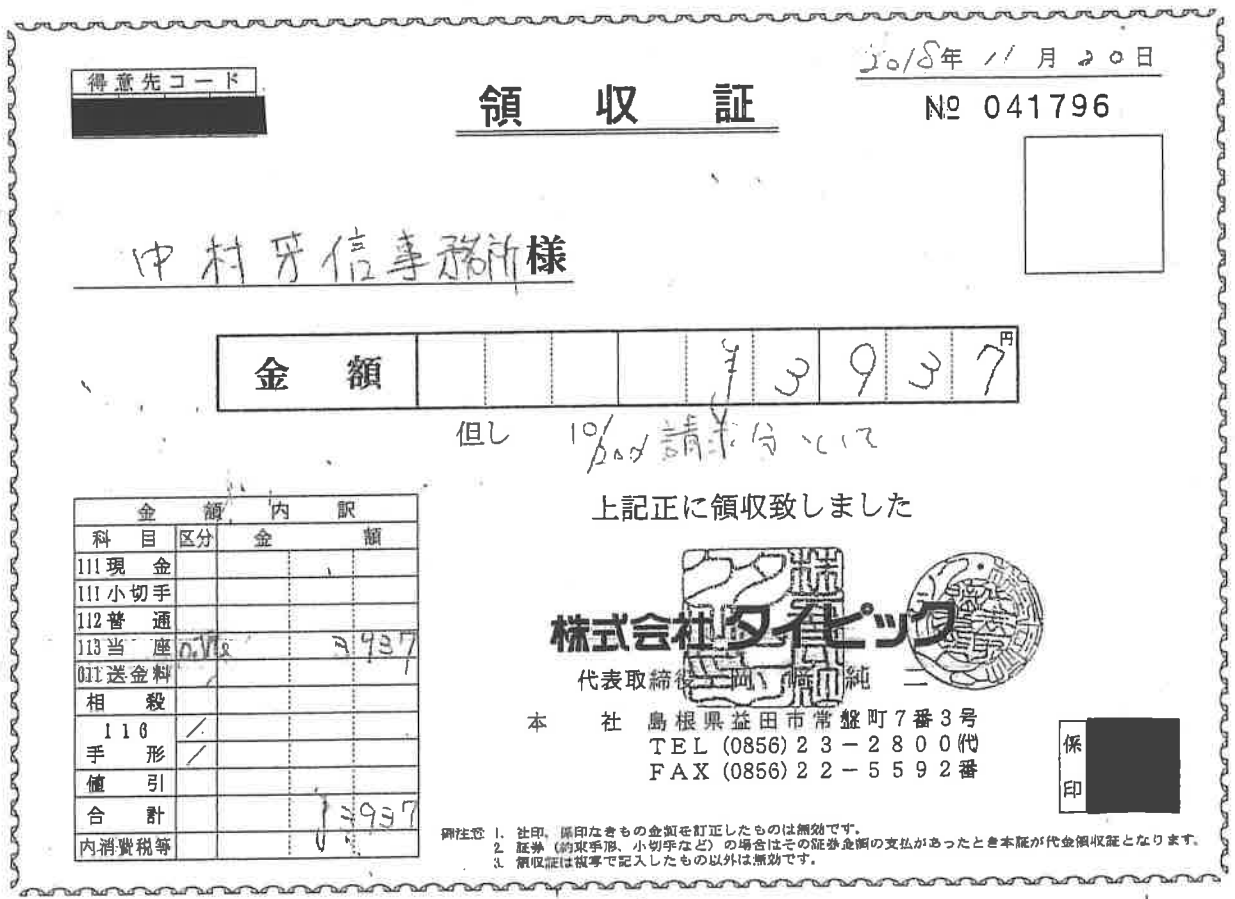 得意先コード
2018年 11月 20日
領収証
№ 041796
中村芳信事務所様
金額 ¥3937円
但し 10/20〆請求分として
上記正に領収致しました
金額内訳
科目 区分 金額
111 現金
111 小切手
112 普通
113 当座 3937
011 送金料
相殺
116
手形
値引
合計 ¥3937
内消費税等
株式会社タイピック
代表取締役 岡﨑純二
本社 島根県益田市常盤町7番3号
TEL (0856) 23-2800㈹
FAX (0856) 22-5592番
係印
御注意 1. 社印、係印なきもの金額を訂正したものは無効です。
2. 証券 (約束手形、小切手など) の場合はその証券金額の支払があったとき本証が代金領収証となります。
3. 領収証は複写で記入したもの以外は無効です。